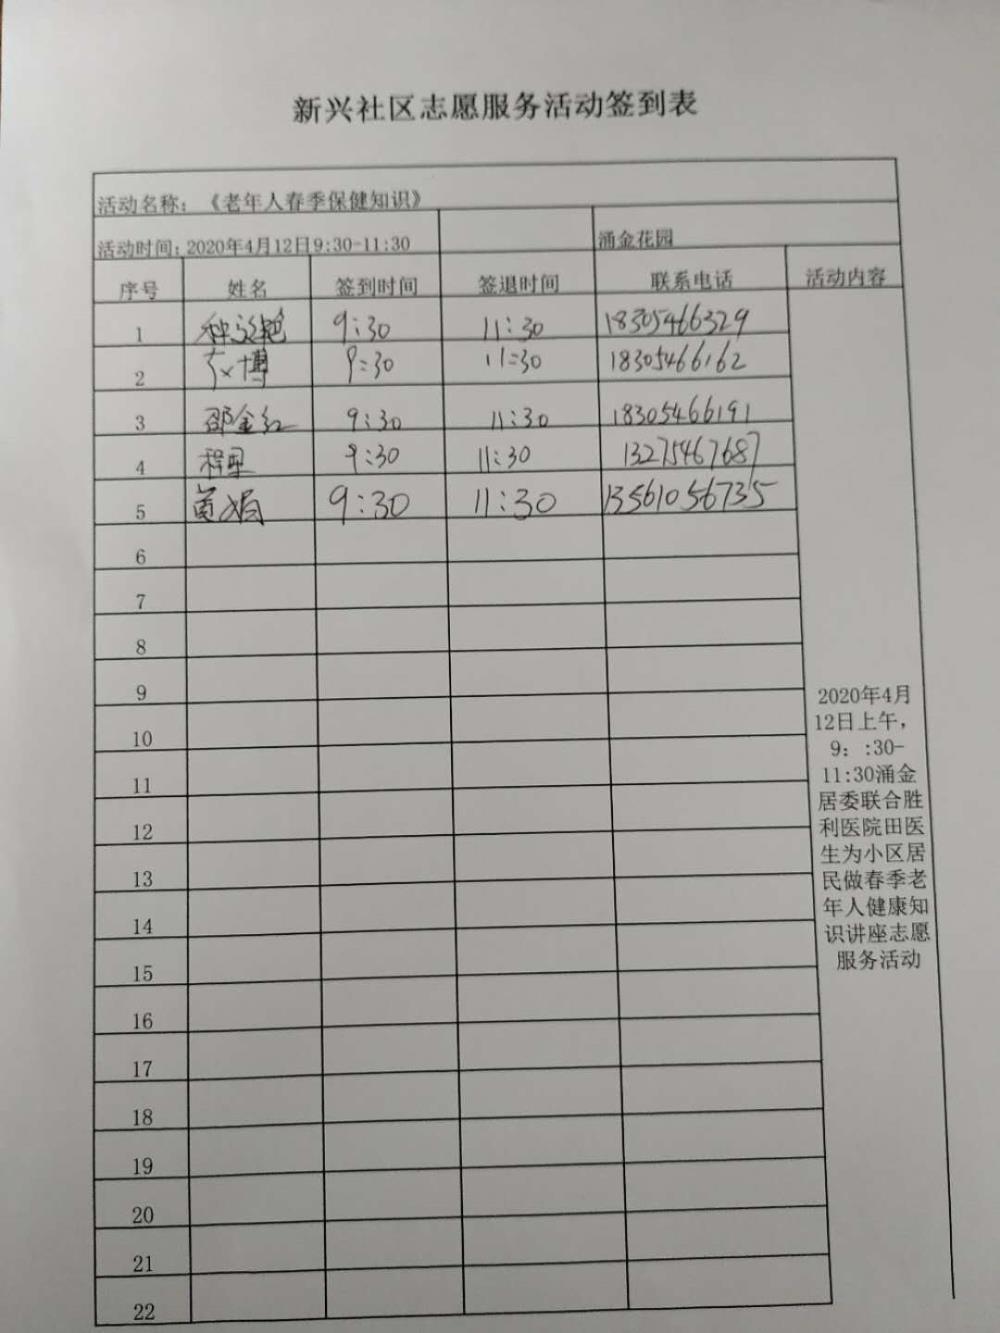 新兴社区志愿服务活动签到表
活动名称：《老年人春季保健知识》
活动时间：2020年4月12日9:30-11:30 涌金花园
序号 姓名 签到时间 签退时间 联系电话 活动内容
1 9:30 11:30 18305466329
2 博 9:30 11:30 18305466162
3 邵金红 9:30 11:30 18305466191
4 程 9:30 11:30 13275467687
5 黄娟 9:30 11:30 13561056735
6
7
8
9
10
11
12
13
14
15
16
17
18
19
20
21
22
2020年4月
12日上午，
9：:30-
11:30涌金
居委联合胜
利医院田医
生为小区居
民做春季老
年人健康知
识讲座志愿
服务活动